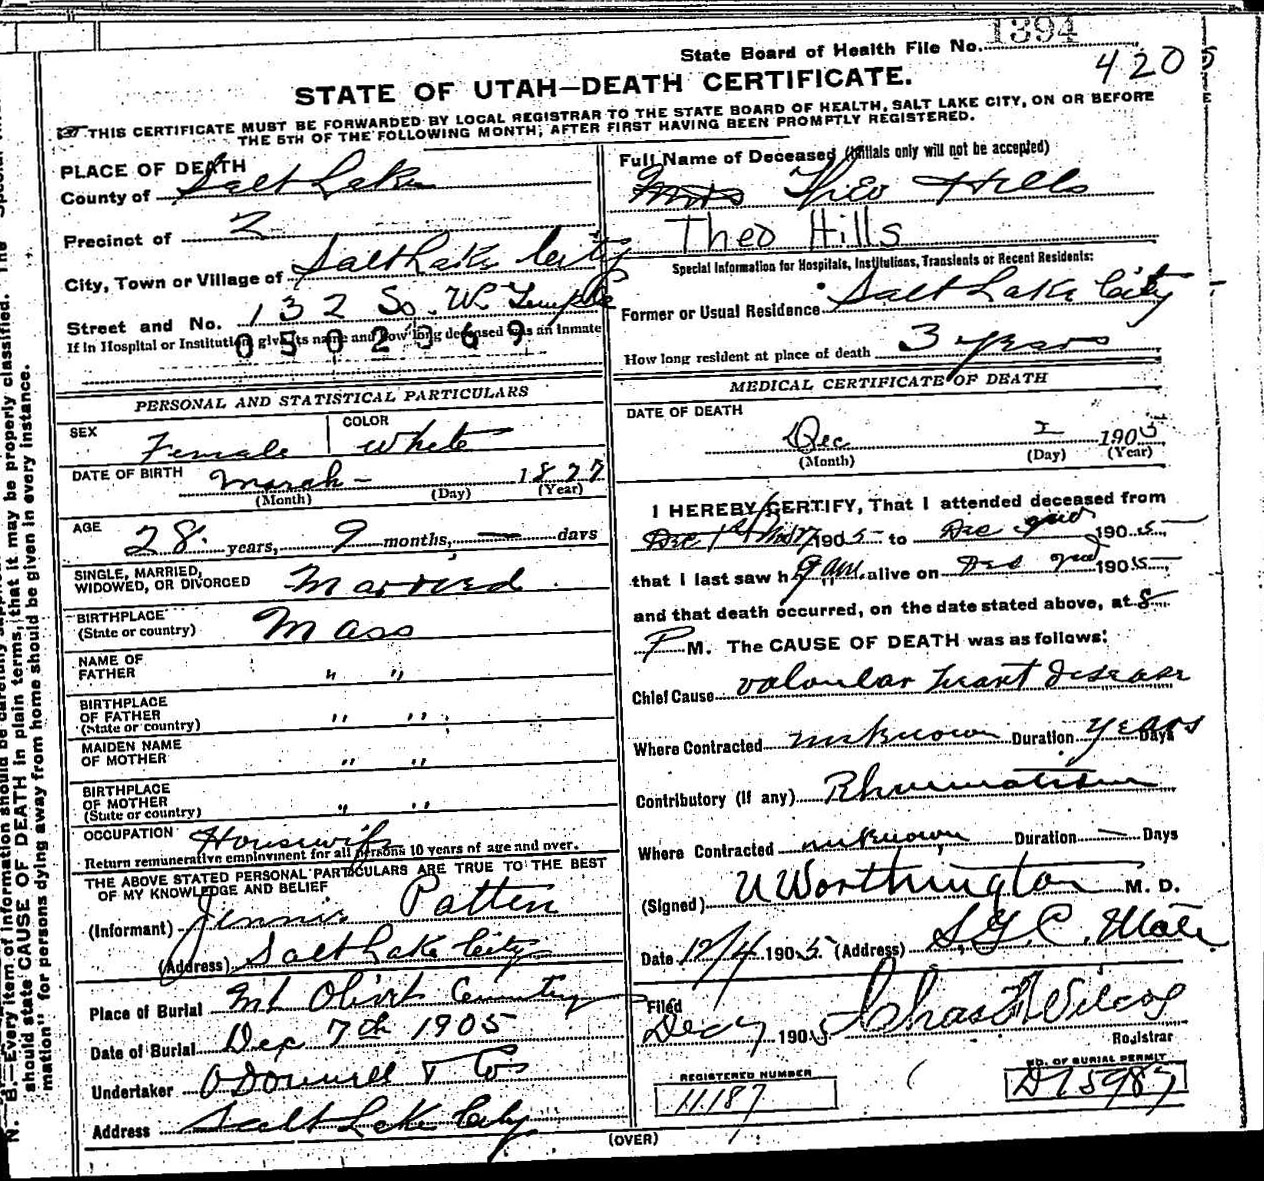 1394
State Board of Health File No.
4205
STATE OF UTAH—DEATH CERTIFICATE.
THIS CERTIFICATE MUST BE FORWARDED BY LOCAL REGISTRAR TO THE STATE BOARD OF HEALTH, SALT LAKE CITY, ON OR BEFORE
THE 5TH OF THE FOLLOWING MONTH, AFTER FIRST HAVING BEEN PROMPTLY REGISTERED.
PLACE OF DEATH
County of Salt Lake
Precinct of 2
City, Town or Village of Salt Lake City
Street and No. 132 So. W. Temple
If in Hospital or Institution, give its name and how long deceased was an inmate
0502369
PERSONAL AND STATISTICAL PARTICULARS
SEX Female COLOR White
DATE OF BIRTH March - 1877
(Month) (Day) (Year)
AGE 28 years, 9 months, — days
SINGLE, MARRIED,
WIDOWED, OR DIVORCED Married
BIRTHPLACE
(State or country) Mass
NAME OF
FATHER " "
BIRTHPLACE
OF FATHER
(State or country) " "
MAIDEN NAME
OF MOTHER " "
BIRTHPLACE
OF MOTHER
(State or country) " "
OCCUPATION Housewife
Return remunerative employment for all persons 10 years of age and over.
THE ABOVE STATED PERSONAL PARTICULARS ARE TRUE TO THE BEST
OF MY KNOWLEDGE AND BELIEF
(Informant) Jennie Patten
(Address) Salt Lake City
Place of Burial Mt Olivet
Date of Burial Dec 7th 1905
Undertaker O'Donnell & Co
Address Salt Lake City
Full Name of Deceased (Initials only will not be accepted)
Mrs Theo Hills
Theo Hills
Special Information for Hospitals, Institutions, Transients or Recent Residents:
Former or Usual Residence Salt Lake City
How long resident at place of death 3 years
MEDICAL CERTIFICATE OF DEATH
DATE OF DEATH
Dec 2 1905
(Month) (Day) (Year)
I HEREBY CERTIFY, That I attended deceased from
Dec 1st 1905 to Dec 2nd 1905
that I last saw h alive on Dec 2nd 1905
and that death occurred, on the date stated above, at 8
P M. The CAUSE OF DEATH was as follows:
Chief Cause valvular heart disease
Where Contracted unknown Duration years Days
Contributory (if any) Rheumatism
Where Contracted unknown Duration — Days
(Signed) U Worthington M. D.
Date 12/4 1905 (Address)
Filed
Dec 7 1905 Chas Wilcox
Registrar
REGISTERED NUMBER
11187
NO. OF BURIAL PERMIT
D15987
(OVER)
N. B.—Every item of information should be carefully
should state CAUSE OF DEATH in plain terms, that it may be properly classified. The
mation" for persons dying away from home should be given in every instance.